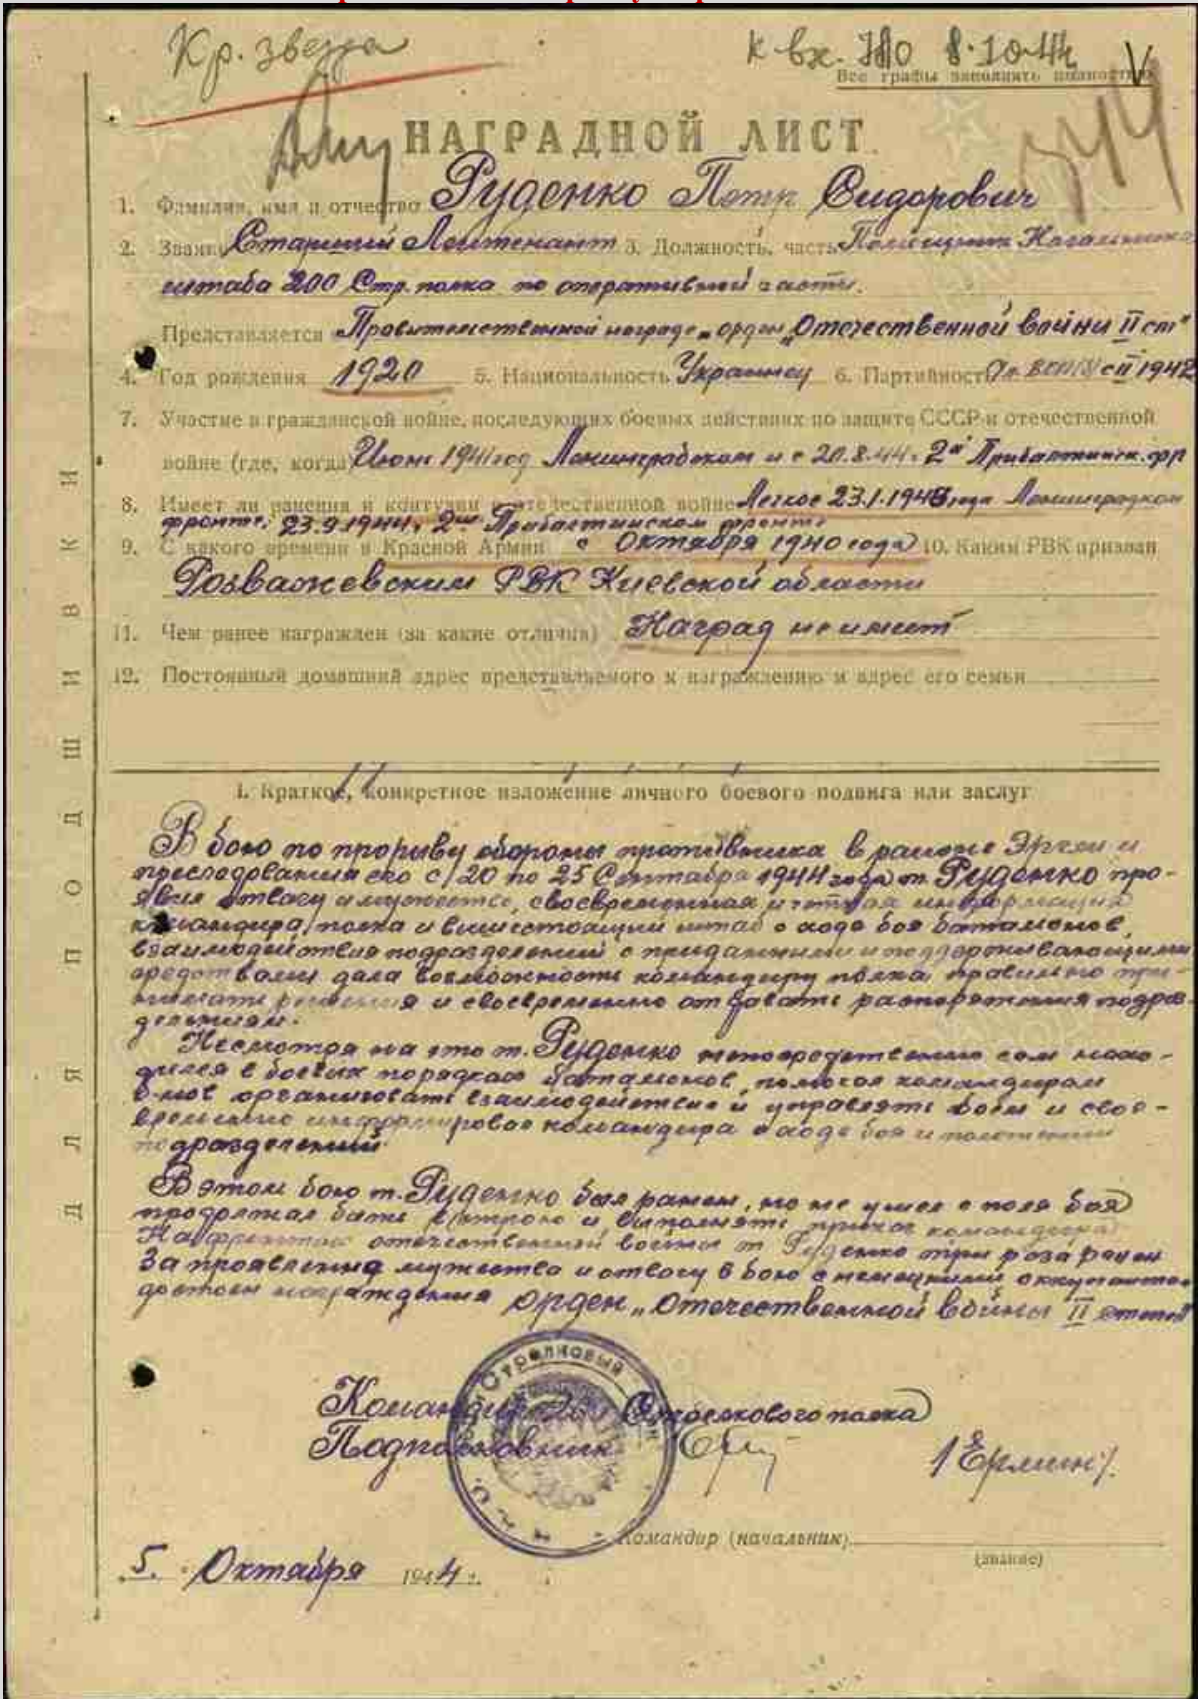 Кр. звезда
к вх. 780 8.10.44 V
Все графы заполнить полностью
НАГРАДНОЙ ЛИСТ
1. Фамилия, имя и отчество Руденко Петр Сидорович
2. Звание Старший Лейтенант 3. Должность, часть Помощник Начальника
штаба 200 Стр. полка по оперативной части.
Представляется Правительственной награде „орден „Отечественной Войны II ст"
4. Год рождения 1920 5. Национальность Украинец 6. Партийность с II 1942
7. Участие в гражданской войне, последующих боевых действиях по защите СССР и отечественной
войне (где, когда) Июнь 1941 год Ленинградском и с 20.8.44 г. 2й Прибалтийск. фр
8. Имеет ли ранения и контузии в отечественной войне Легкое 23.1.1943 года Ленинградком
фронте. 23.9.1944 г. 2м Прибалтийском фронте
9. С какого времени в Красной Армии с Октября 1940 года 10. Каким РВК призван
Розважевским РВК Киевской области
11. Чем ранее награжден (за какие отличия) Наград не имеет
12. Постоянный домашний адрес представляемого к награждению и адрес его семьи
ДЛЯ ПОДШИВКИ
I. Краткое, конкретное изложение личного боевого подвига или заслуг
В бою по прорыву обороны противника в районе Эргли и
преследования его с 20 по 25 Сентября 1944 года т. Руденко про-
явил отвагу и мужество, своевременная и четкая информация
командира полка и вышестоящий штаб о ходе боя батальонов,
взаимодействие подразделений с приданными и поддерживающими
средствами дала возможность командиру полка правильно при-
нимать решения и своевременно отдавать распоряжения подраз-
делениям.
Несмотря на это т. Руденко непосредственно сам нахо-
дился в боевых порядках батальонов, помогая командирам
б-нов организовать взаимодействие и управлять боем и свое-
временно информировал командира о ходе боя и положении
подразделений.
В этом бою т. Руденко был ранен, но не ушел с поля боя
продолжал быть в строю и выполнять приказ командира
На фронтах отечественной войны т. Руденко три раза ранен
За проявление мужества и отвагу в бою с немецкими оккупантами
достоин награждения орден „Отечественной Войны II степени"
Командир 200 Стрелкового полка
Подполковник /Ермин/.
Стрелковый
Командир (начальник)
(звание)
5. Октября 1944 г.